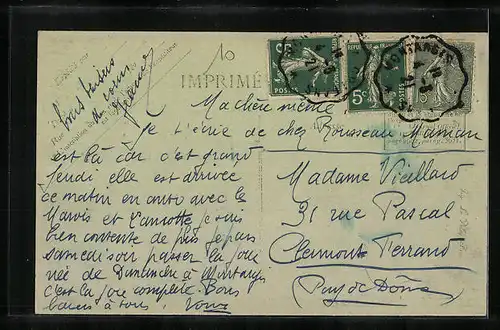 10
Tous baisers
de nous
Jeanne
IMPRIMÉ
5c
POSTES
5c
MONTARGIS
15
Ma chère mémé
je t'écrie de chez Rousseau Maman
est là car c'est grand
jeudi elle est arrivée
ce matin en auto avec le
et je suis
bien contente de plus je pars
samedi soir passer la jour
née de Dimanche à Montargis
c'est la joie complète. Bons
baisers à tous.
Madame Vieillard
31 rue Pascal
Clermont Ferrand
Puy de Dôme